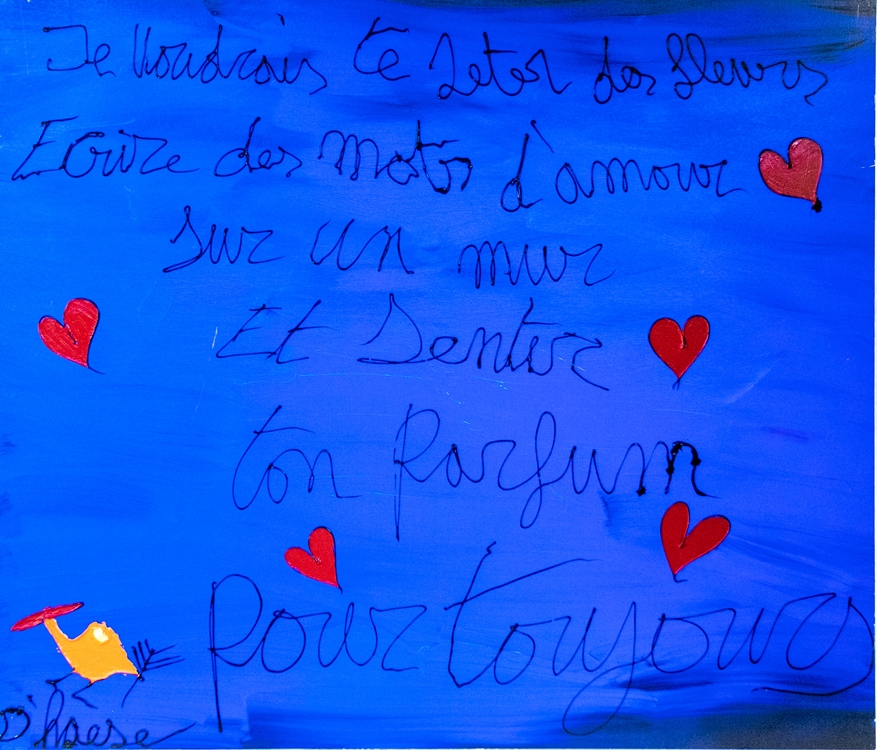 Je Voudrais te Jeter des fleurs
Ecrire des mots d'amour
sur un mur
Et Sentir
ton Parfum
Pour toujours
D'haese